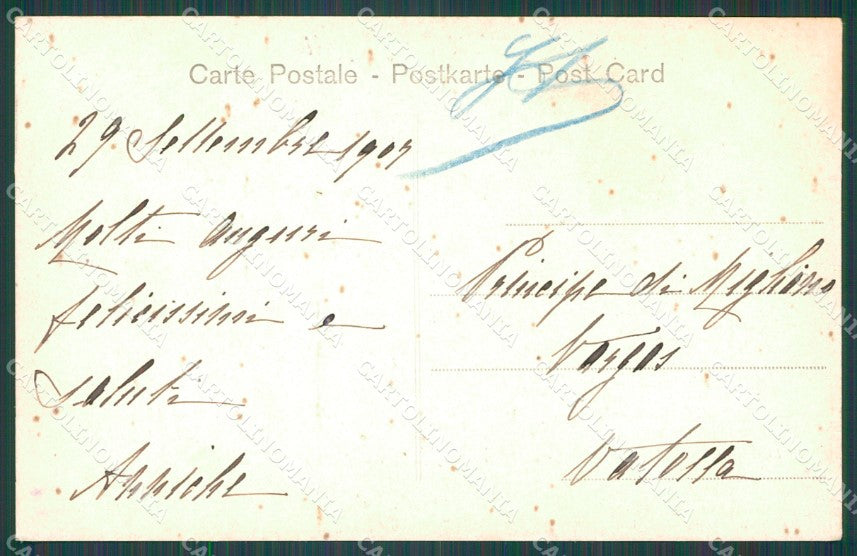 Carte Postale - Postkarte - Post Card
29 Settembre 1907
Molti auguri
felicissimi e
saluti
Principe di Migliano
Vargas
Vatolla
CARTOLINOMANIA